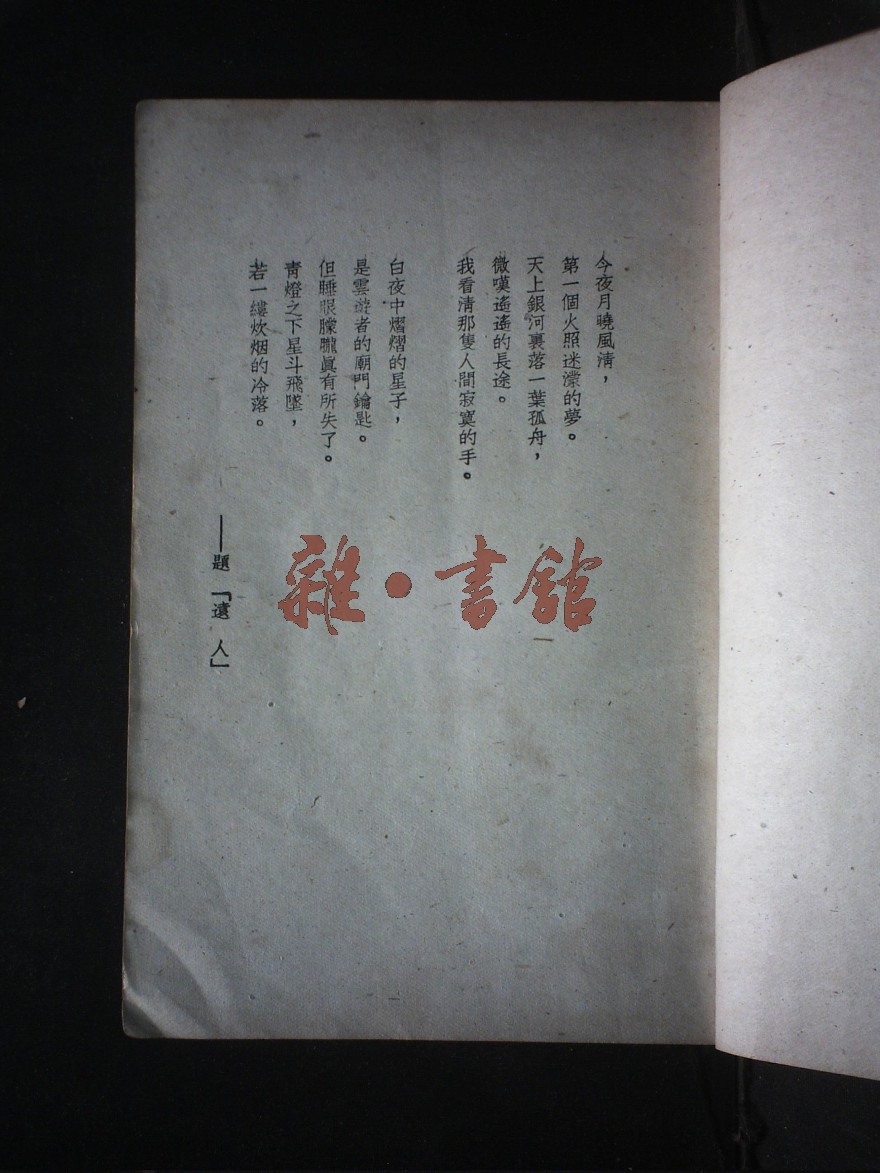 今夜月曉風清，
第一個火照迷濛的夢。
天上銀河裏落一葉孤舟，
微嘆遙遙的長途。
我看清那隻人間寂寞的手。
白夜中熠熠的星子，
是雲遊者的廟門鑰匙。
但睡眼朦朧眞有所失了。
靑燈之下星斗飛墜，
若一縷炊烟的冷落。
——題「遠人」
雜·書館